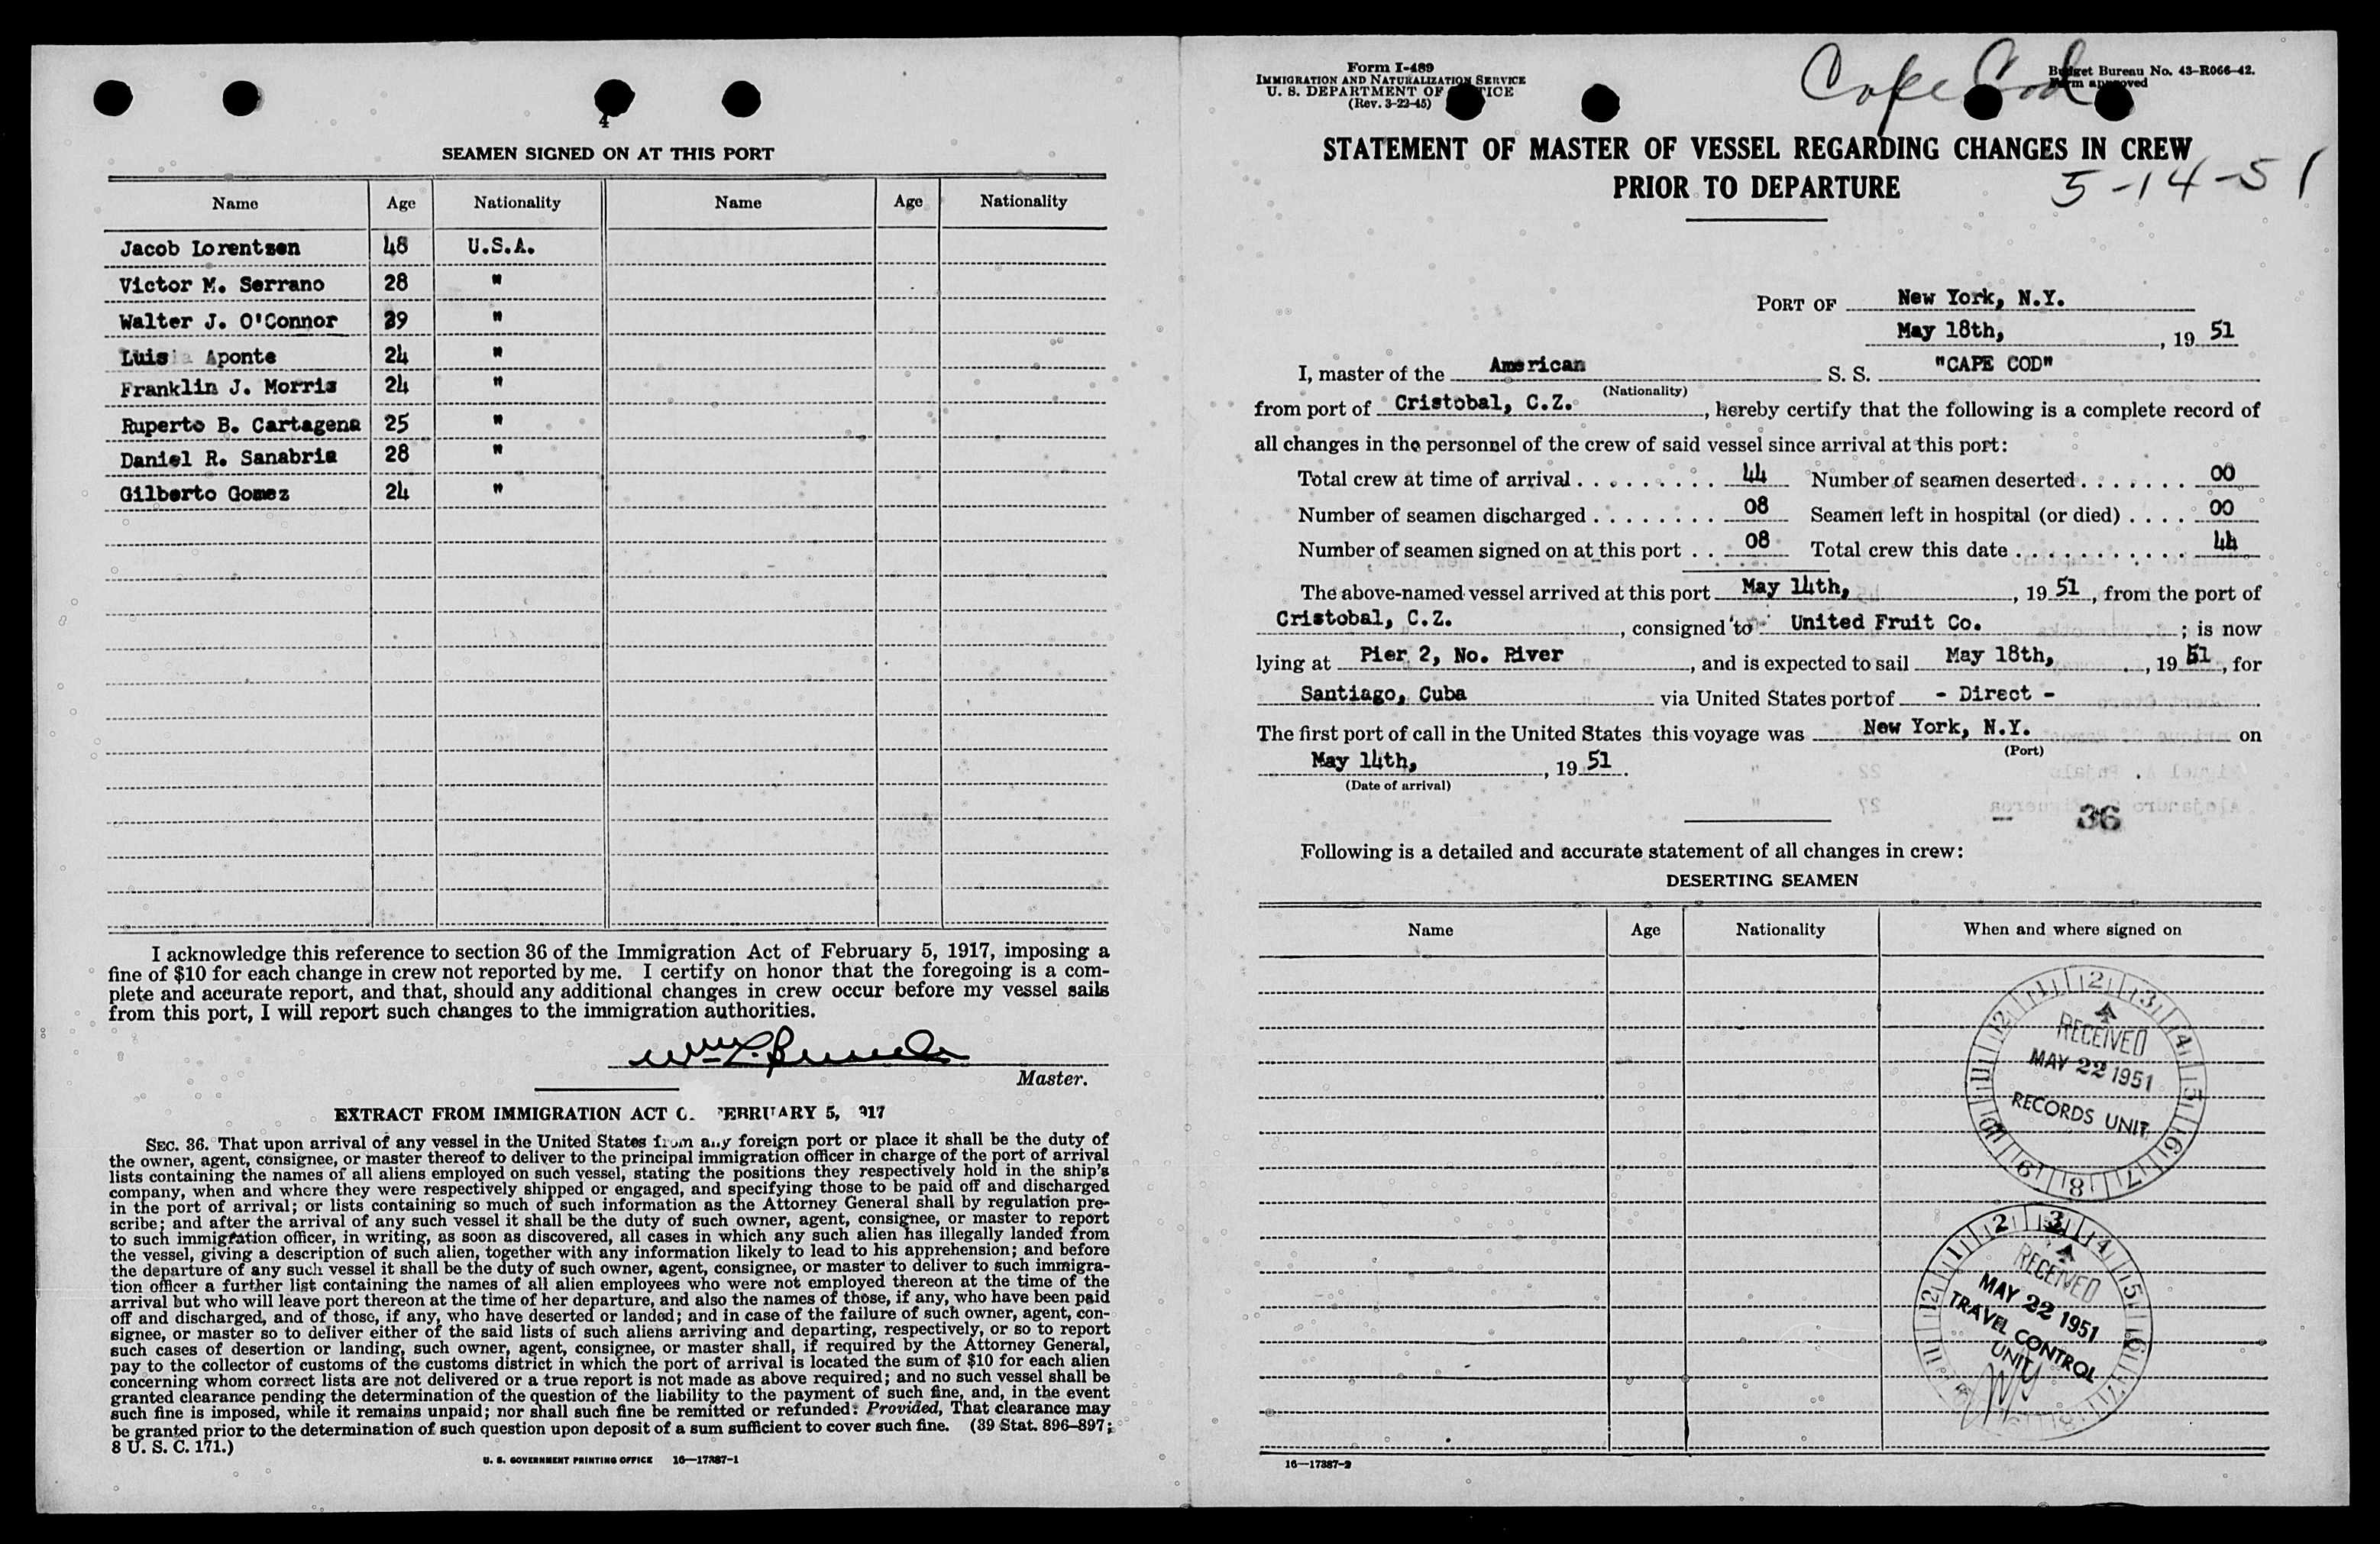 4
SEAMEN SIGNED ON AT THIS PORT
Name Age Nationality Name Age Nationality
Jacob Lorentsen 48 U.S.A.
Victor M. Serrano 28 "
Walter J. O'Connor 39 "
Luis Aponte 24 "
Franklin J. Morris 24 "
Ruperto B. Cartagena 25 "
Daniel R. Sanabria 28 "
Gilberto Gomez 24 "
I acknowledge this reference to section 36 of the Immigration Act of February 5, 1917, imposing a
fine of $10 for each change in crew not reported by me. I certify on honor that the foregoing is a com-
plete and accurate report, and that, should any additional changes in crew occur before my vessel sails
from this port, I will report such changes to the immigration authorities.
Master.
EXTRACT FROM IMMIGRATION ACT OF FEBRUARY 5, 1917
SEC. 36. That upon arrival of any vessel in the United States from any foreign port or place it shall be the duty of
the owner, agent, consignee, or master thereof to deliver to the principal immigration officer in charge of the port of arrival
lists containing the names of all aliens employed on such vessel, stating the positions they respectively hold in the ship's
company, when and where they were respectively shipped or engaged, and specifying those to be paid off and discharged
in the port of arrival; or lists containing so much of such information as the Attorney General shall by regulation pre-
scribe; and after the arrival of any such vessel it shall be the duty of such owner, agent, consignee, or master to report
to such immigration officer, in writing, as soon as discovered, all cases in which any such alien has illegally landed from
the vessel, giving a description of such alien, together with any information likely to lead to his apprehension; and before
the departure of any such vessel it shall be the duty of such owner, agent, consignee, or master to deliver to such immigra-
tion officer a further list containing the names of all alien employees who were not employed thereon at the time of the
arrival but who will leave port thereon at the time of her departure, and also the names of those, if any, who have been paid
off and discharged, and of those, if any, who have deserted or landed; and in case of the failure of such owner, agent, con-
signee, or master so to deliver either of the said lists of such aliens arriving and departing, respectively, or so to report
such cases of desertion or landing, such owner, agent, consignee, or master shall, if required by the Attorney General,
pay to the collector of customs of the customs district in which the port of arrival is located the sum of $10 for each alien
concerning whom correct lists are not delivered or a true report is not made as above required; and no such vessel shall be
granted clearance pending the determination of the question of the liability to the payment of such fine, and, in the event
such fine is imposed, while it remains unpaid; nor shall such fine be remitted or refunded: Provided, That clearance may
be granted prior to the determination of such question upon deposit of a sum sufficient to cover such fine. (39 Stat. 896–897;
8 U. S. C. 171.)
U. S. GOVERNMENT PRINTING OFFICE 16—17387-1
Form I-489
IMMIGRATION AND NATURALIZATION SERVICE
U. S. DEPARTMENT OF JUSTICE
(Rev. 3-22-45)
Cape Cod
Budget Bureau No. 43-R066-42.
Form approved
STATEMENT OF MASTER OF VESSEL REGARDING CHANGES IN CREW
PRIOR TO DEPARTURE
5-14-51
PORT OF New York, N.Y.
May 18th, , 19 51
I, master of the American S. S. "CAPE COD"
(Nationality)
from port of Cristobal, C.Z. , hereby certify that the following is a complete record of
all changes in the personnel of the crew of said vessel since arrival at this port:
Total crew at time of arrival . . . . . . . . . 44 Number of seamen deserted . . . . . . . 00
Number of seamen discharged . . . . . . . . 08 Seamen left in hospital (or died) . . . . 00
Number of seamen signed on at this port . . 08 Total crew this date . . . . . . . . . . . 44
The above-named vessel arrived at this port May 14th, , 19 51 , from the port of
Cristobal, C.Z. , consigned to United Fruit Co. ; is now
lying at Pier 2, No. River , and is expected to sail May 18th, , 19 51 , for
Santiago, Cuba via United States port of - Direct -
The first port of call in the United States this voyage was New York, N.Y. on
(Port)
May 14th, , 19 51 .
(Date of arrival)
36
Following is a detailed and accurate statement of all changes in crew:
DESERTING SEAMEN
Name Age Nationality When and where signed on
RECEIVED
MAY 22 1951
RECORDS UNIT
RECEIVED
MAY 22 1951
TRAVEL CONTROL
UNIT
16—17387-2